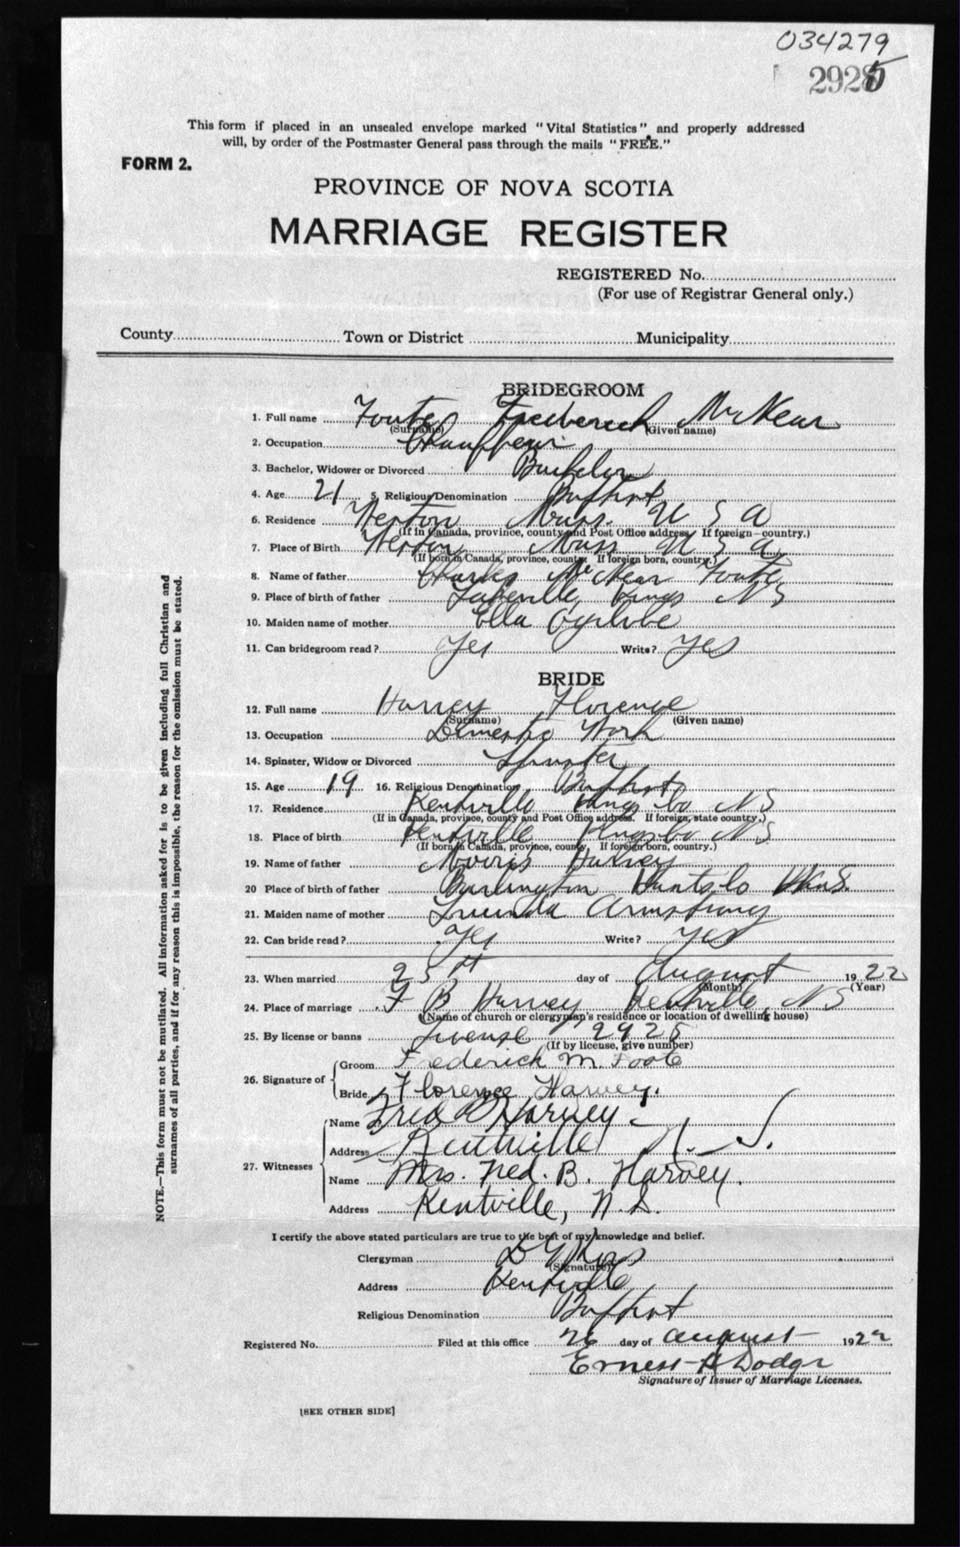 034279
2925
This form if placed in an unsealed envelope marked "Vital Statistics", and properly addressed
will, by order of the Postmaster General pass through the mails "FREE."
FORM 2.
PROVINCE OF NOVA SCOTIA
MARRIAGE REGISTER
REGISTERED No.
(For use of Registrar General only.)
County Town or District Municipality
BRIDEGROOM
1. Full name Foote Frederick McNear
(Surname) (Given name)
2. Occupation Chauffeur
3. Bachelor, Widower or Divorced Bachelor
4. Age 21 5. Religious Denomination Baptist
6. Residence Newton Mass. U S A
(If in Canada, province, county and Post Office address. If foreign—country.)
7. Place of Birth Newton Mass U S A
(If born in Canada, province, county. If foreign born, country.)
8. Name of father Charles McNear Foote
9. Place of birth of father Kings N S
10. Maiden name of mother Ella Ogilvie
11. Can bridegroom read? Yes Write? Yes
BRIDE
12. Full name Harvey Florence
(Surname) (Given name)
13. Occupation Domestic Work
14. Spinster, Widow or Divorced Spinster
15. Age 19 16. Religious Denomination Baptist
17. Residence Kentville Kings Co N S
(If in Canada, province, county and Post Office address. If foreign, state country.)
18. Place of birth Kentville Kings Co N S
(If born in Canada, province, county, If foreign born, country.)
19. Name of father Morris Harvey
20 Place of birth of father Burlington Hants Co N.S.
21. Maiden name of mother Lucinda Armstrong
22. Can bride read? Yes Write? Yes
23. When married 25th day of August 1922
(Month) (Year)
24. Place of marriage F B Harvey Kentville, N S
(Name of church or clergyman's residence or location of dwelling house)
25. By license or banns License 2925
(If by license, give number)
26. Signature of Groom Frederick M Foote
Bride Florence Harvey.
27. Witnesses Name Fred B Harvey
Address Kentville N. S.
Name Mrs. Fred. B. Harvey.
Address Kentville, N.S.
I certify the above stated particulars are true to the best of my knowledge and belief.
Clergyman
(Signature)
Address Kentville
Religious Denomination Baptist
Registered No. Filed at this office 26 day of August 1922
Ernest H Dodge
Signature of Issuer of Marriage Licenses.
[SEE OTHER SIDE]
NOTE.—This form must not be mutilated. All information asked for is to be given including full Christian and
surnames of all parties, and if for any reason this is impossible, the reason for the omission must be stated.